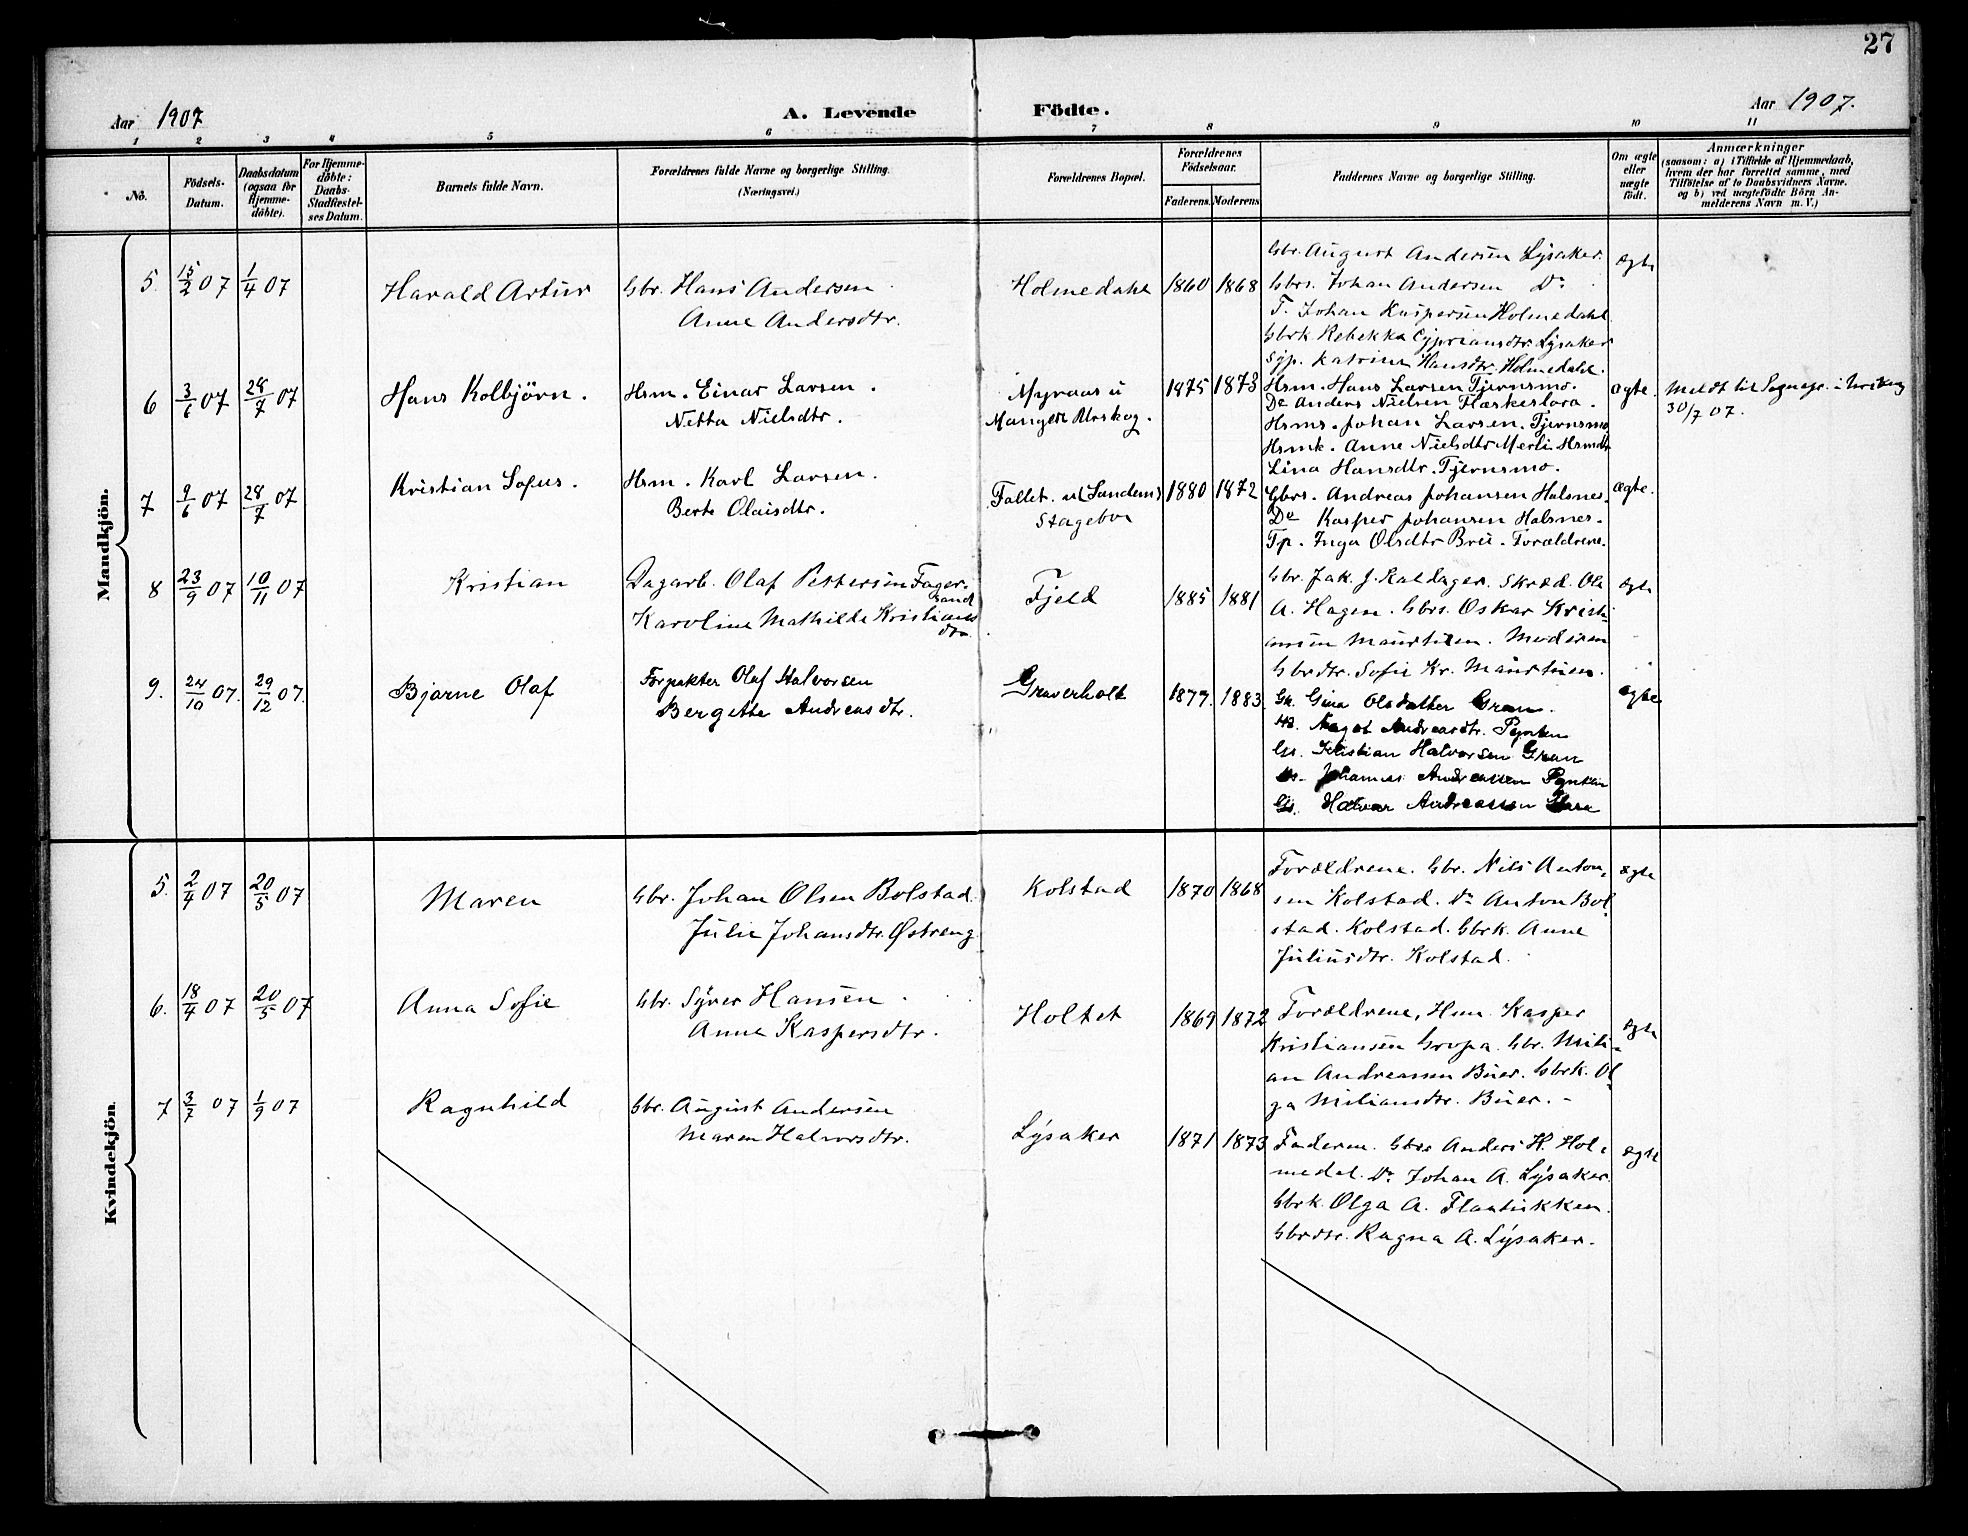 27
Aar 1907
A. Levende Födte.
Aar 1907.
1 2 3 4 5 6 7 8 9 10 11
No.
Födsels-Datum.
Daabsdatum (ogsaa for Hjemme-döbte).
For Hjemme-döbte: Daabs-Stadfæstel-ses Datum.
Barnets fulde Navn.
Forældrenes fulde Navne og borgerlige Stilling.
(Næringsvei.)
Forældrenes Bopæl.
Forældrenes Födselsaar.
Faderens. Moderens.
Faddernes Navne og borgerlige Stilling.
Om ægte eller uægte födt.
Anmærkninger
(saasom: a) i Tilfælde af Hjemmedaab,
hvem der har forrettet samme, med
Tilföielse af to Daabsvidners Navne.
og b) ved uægtefödte Börn An-
melderens Navn m. V.)
Mandkjön.
5. 15/2 07 1/4 07 Harald Artur
Gbr. Hans Andersen
Anne Andersdtr.
Holmedahl 1860 1868
Gbr. August Andersen Lysaker.
Gbrs. Johan Andersen Do
T. Johan Kaspersen Holmedahl
Gbrk Rebekka Cypriansdtr. Lysaker
Syp. Katrine Hansdtr. Holmedahl.
ægte
6 3/6 07 28/7 07 Hans Kolbjörn.
Hsm. Einar Larsen.
Netta Nielsdtr.
Myraas u
Mangen Urskog.
1875 1873
Hsm. Hans Larsen Tjernsmo.
Do Anders Nielsen Flæskeslora.
Hsms. Johan Larsen. Tjernsmo
Hsmk. Anne Nielsdtr Merli Hsmdtr
Lina Hansdtr. Tjernsmo.
ægte.
Meldt til Sognepr. i Urskog
30/7 07.
7 9/6 07 28/7 07 Kristian Sofus.
Hsm. Karl Larsen.
Berte Olaisdtr.
Fallet. u (Sandem)
Stagebor
1880 1872
Gbrs. Andreas Johansen Halsnes.
Do Kasper Johansen Halsnes.
Tp. Inga Olsdtr Brei. Forældrene.
ægte.
8 23/9 07 10/11 07 Kristian
Dagarb. Olaf Pettersen Fager-
sand
Karoline Mathilde Kristians
dtr.
Fjeld 1885 1881
Gbr. Jak. J. Kaldager. Skræd. Ole
A. Hagen. Gbrs. Oskar Kristi-
ansen Maurtuen. Moderen
Gbrdtr. Sofie Kr. Maurtuen.
ægte
9. 24/10 07. 29/12 07. Bjarne Olaf
Forpakter Olaf Halvorsen
Bergette Andreasdtr.
Graverholt 1877. 1883.
Gk. Gina Olsdatter Gran.
Magot Andreasdtr. Pynten
Gs. Kristian Halvorsen Gran
Johannes Andreassen Pynten
Gs. Halvor Andreassen
ægte
Kvindekjön.
5. 2/4 07 20/5 07 Maren
Gbr. Johan Olsen Bolstad.
Julie Johansdtr. Østreng
Kolstad 1870 1868
Forældrene. Gbr. Nils Anton-
sen Kolstad. Do Anton Bol-
stad. Kolstad. Gbrk. Anne
Juliusdtr. Kolstad.
ægte
6. 18/4 07 20/5 07 Anna Sofie
Gbr. Syver Hansen.
Anne Kaspersdtr.
Holtet 1869 1872
Forældrene, Hsm. Kasper
Kristiansen Gropa. Gbr. Mili-
an Andreassen Buer. Gbrk. Ol-
ga Miliansdtr. Buer.-
ægte
7 3/7 07 1/9 07 Ragnhild
Gbr. August Andersen
Maren Halvorsdtr.
Lysaker 1871 1873
Faderen. Gbrs Anders H. Hol-
medal. Do Johan A. Lysaker.
Gbrk. Olga A. Flautukken.
Gbrdtr. Ragna A. Lysaker.
ægte